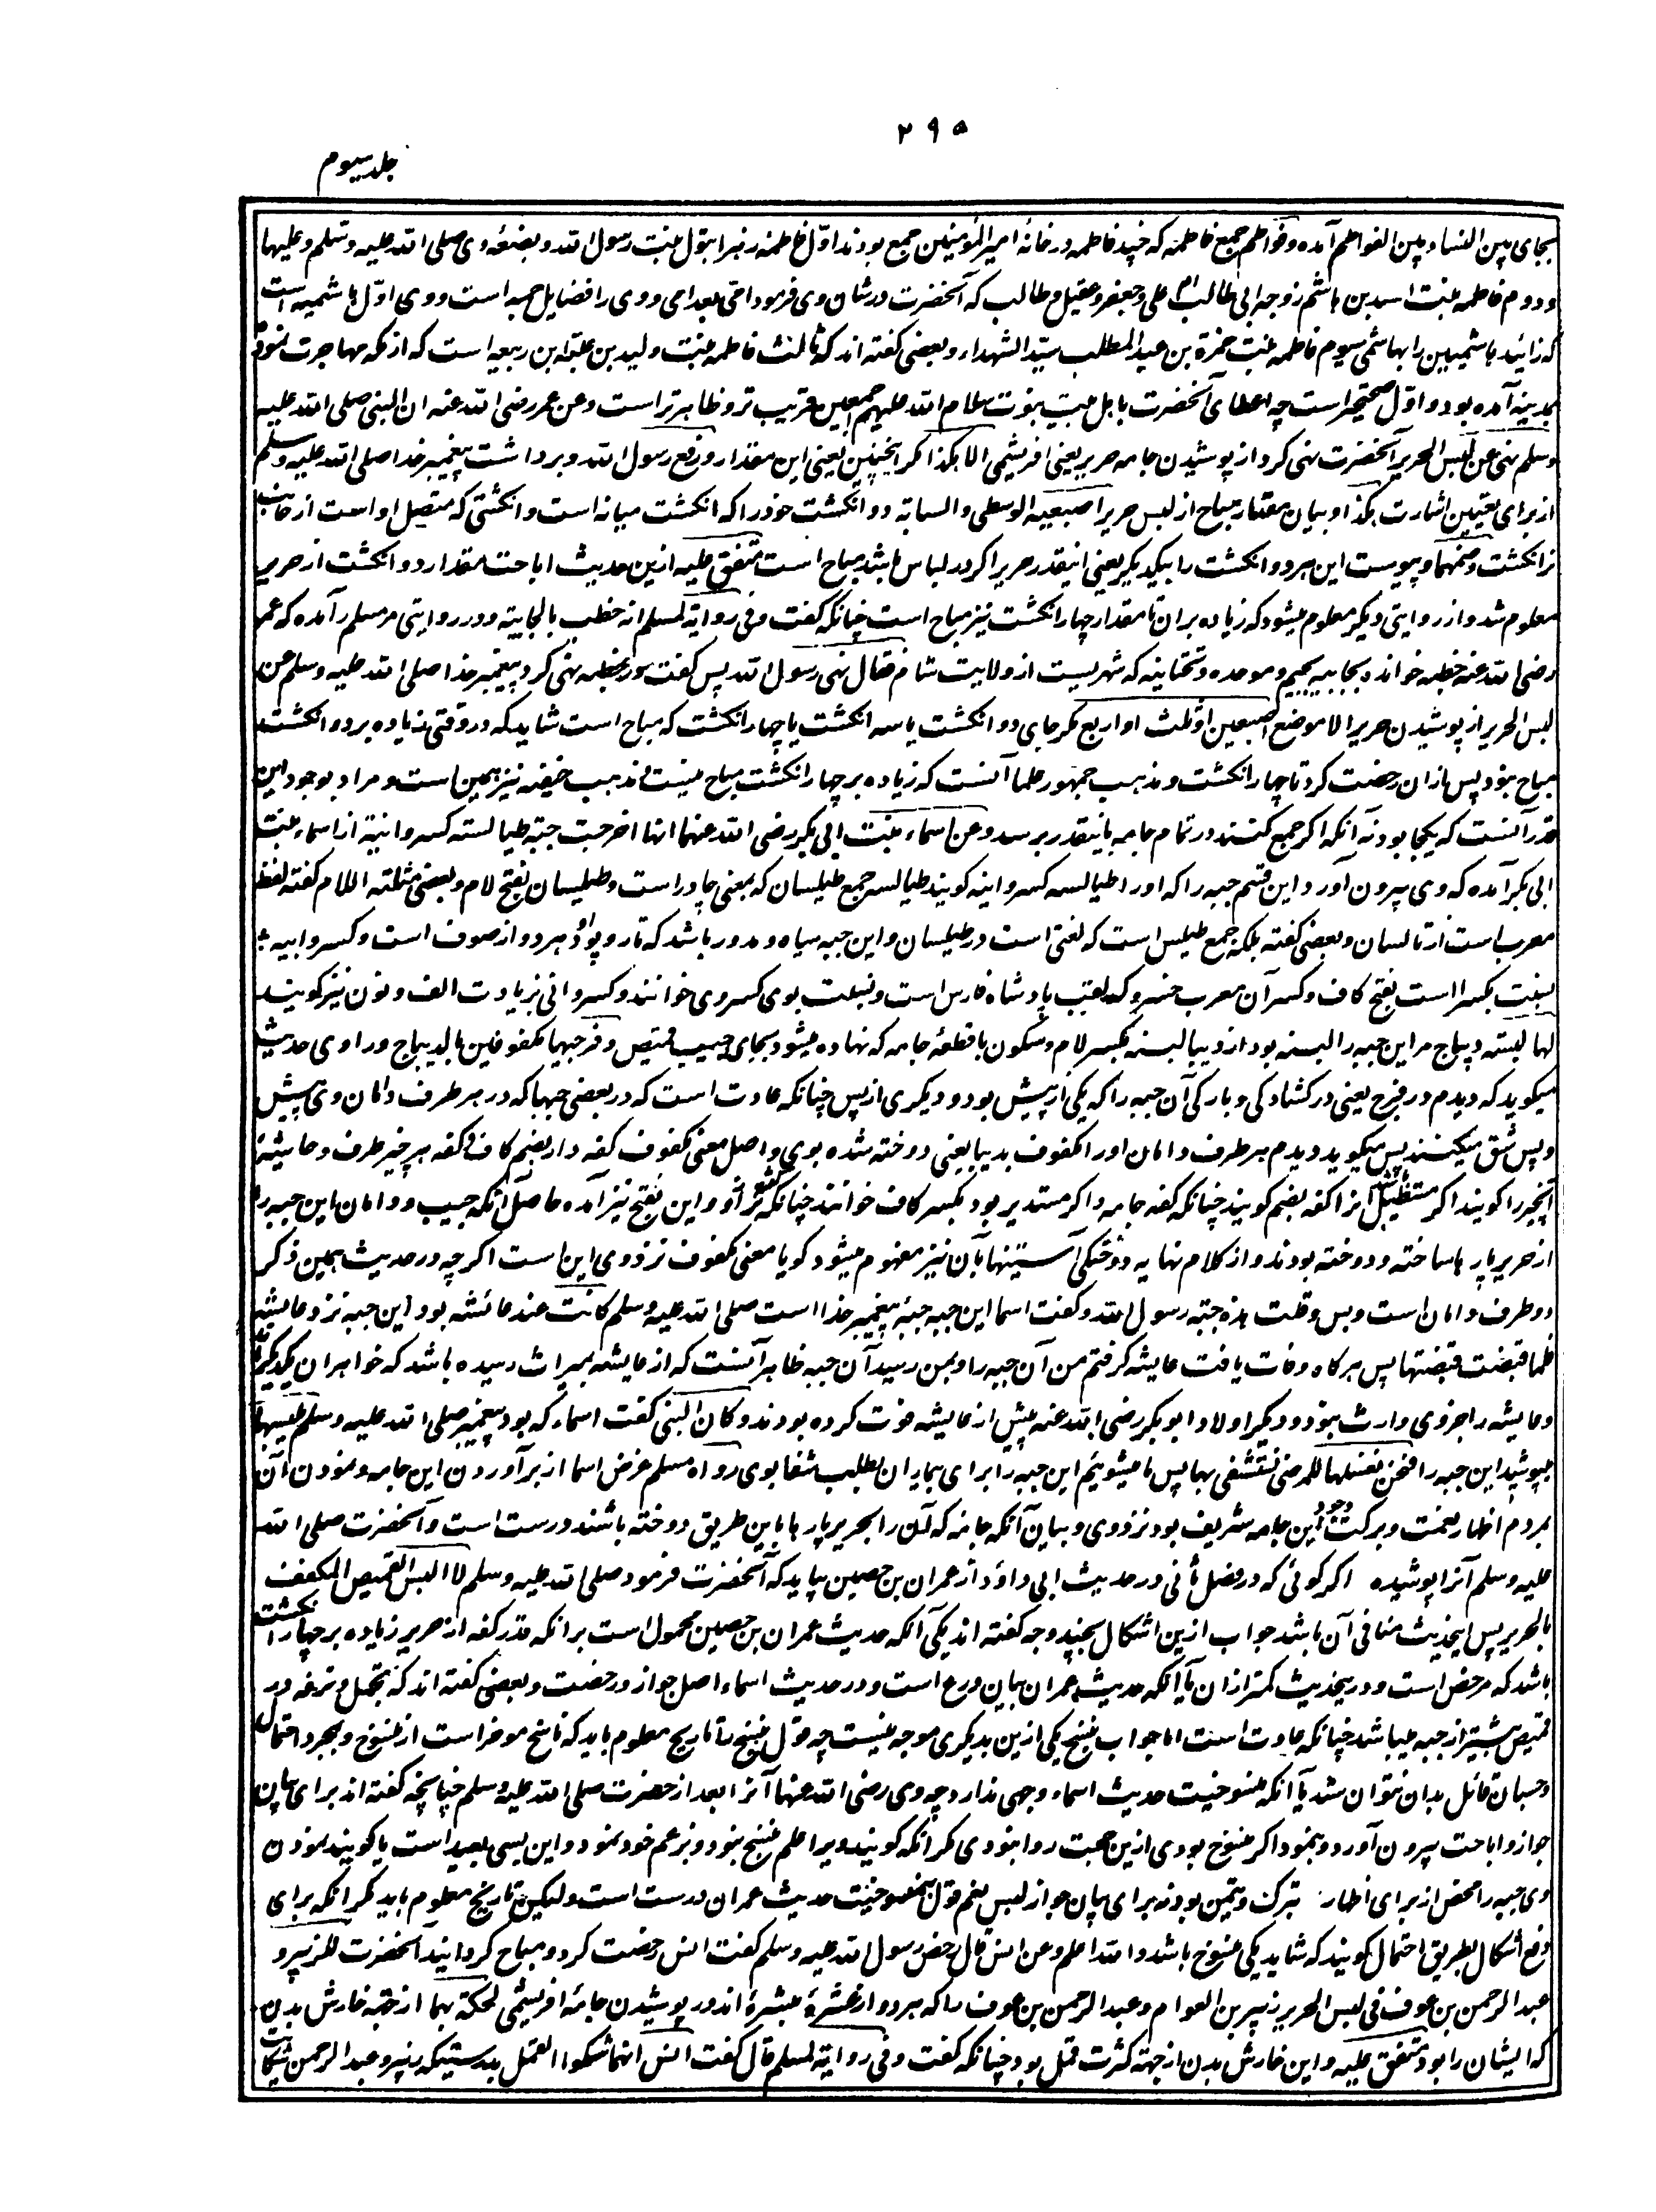 ۲۹۵
جلد سیوم
بجای بین النساء بین الفواطم آمده وفواطم جمع فاطمه که چند فاطمه در خانهٔ امیر المؤمنین جمع بودند اوّل فاطمه زهرا بتول بنت رسول الله وبضعهٔ وی صلی الله علیه وسلم وعلیها
ودوم فاطمه بنت اسد بن هاشم زوجه ابی طالب ام علی وجعفر وعقیل وطالب که آنحضرت در شان وی فرمود امی بعد امی ووی را فضایل جمه است ووی اوّل هاشمیه است
که زائید هاشمیین را بهاشمی سیوم فاطمه بنت حمزة بن عبد المطلب سیّد الشهداء وبعضی گفته اند که ثالث فاطمه بنت ولید بن عتبه ابن ربیعه است که از مکه مهاجرت نموده
بمدینه آمده بود واوّل صحیحتر است چه اعطای آنحضرت باهل بیت نبوت سلام الله علیهم اجمعین قریب تر وظاهرتر است وعن عمر رضی الله عنه ان النبی صلی الله علیه
وسلم نهی عن لبس الحریر آنحضرت نهی کرد از پوشیدن جامه حریر یعنی ابریشمی الا هکذا مگر اینچنین یعنی این مقدار ورفع رسول الله وبرداشت پیغمبر خدا صلی الله علیه وسلم
از برای تعیین اشارت هکذا وبیان مقدار مباح از لبس حریر اصبعیه الوسطی والسبابة دو انگشت خود را که انگشت میانه است وانگشتی که متصل اوست از جانب
نر انگشت وضمهما وپیوست این هر دو انگشت را بیکدیگر یعنی اینقدر حریر اگر در لباس باشد مباح است متفق علیه ازین حدیث اباحت مقدار دو انگشت از حریر
معلوم شد واز روایتی دیگر معلوم میشود که زیاده بران تا مقدار چهار انگشت نیز مباح است چنانکه گفت وفی روایة لمسلم انه خطب بالجابیة ودر روایتی مر مسلم را آمده که عمر
رضی الله عنه خطبه خواند بجابیه بجیم وموحده وتحتانیه که شهریست از ولایت شام فقال نهی رسول الله پس گفت در خطبه نهی کرد پیغمبر خدا صلی الله علیه وسلم عن
لبس الحریر از پوشیدن حریر الا موضع اصبعین او ثلث او اربع مگر جای دو انگشت یا سه انگشت یا چهار انگشت که مباح است شاید که در وقتی زیاده بر دو انگشت
مباح نبود پس ازان رخصت کرد تا چهار انگشت ومذهب جمهور علما آنست که زیاده بر چهار انگشت مباح نیست ومذهب حنیفه نیز همین است ومراد بوجود این
قدر آنست که یکجا بود نه آنکه اگر جمع کنند در تمام جامه باینقدر برسد وعن اسماء بنت ابی بکر رضی الله عنهما انها اخرجت جبة طیالسة کسروانیة از اسماء بنت
ابی بکر آمده که وی بیرون آورد این قسم جبه را که او را طیالسه کسروانیه گویند طیالسه جمع طیلسان که بمعنی چادر است وطیلسان بفتح لام وبعضی مثلثة اللام گفته لفظ
معرب است از تالسان وبعضی گفته بلکه جمع طیلس است که لغتی است در طیلسان واین جبه سیاه ومدور باشد که تار وپود او هر دو از صوف است وکسروانیه
نسبت بکسرا است بفتح کاف وکسر آن معرب خسرو که لقب پادشاه فارس است ونسبت بوی کسروی خوانند وکسروانی بزیادت الف ونون نیز گویند
لها لبنة دیباج مر این جبه را لبنه بود از دیبا لبنه بکسر لام وسکون با قطعهٔ جامه که نهاده میشود بجای جیب قمیص وفرجیها مکفوفین بالدیباج وراوی حدیث
میگوید که دیدم در فرج یعنی در گشادگی وبارگی آن جبه را که یکی از پیش بود ودیگری از پس چنانکه عادت است که در بعضی جبها که در هر طرف دامان وی پیش
وپس شق میکنند پس میگوید دیدم هر طرف دامان او را مکفوف بدیبا یعنی دوخته شده بوی واصل معنی مکفوف کفه دار بضم کاف کفه هر چیز طرف وحاشیهٔ
آنچیز را گویند اگر مستطیل باشد آنرا کفه بضم گویند چنانکه کفه جامه واگر مستدیر بود بکسر کاف خوانند چنانکه کفهٔ ترازو واین بفتح نیز آمده حاصل آنکه جیب ودامان این جبه را
از حریر پارها ساخته ودوخته بودند واز کلام نهایه دوختگی آستینها بآن نیز مفهوم میشود گویا معنی مکفوف نزد وی این است اگرچه در حدیث همین ذکر
دو طرف دامان است وبس وقالت هذه جبة رسول الله وگفت اسما این جبه جبهٔ پیغمبر خدا است صلی الله علیه وسلم کانت عند عائشه بود این جبه نزد عایشه
فلما قبضت قبضتها پس هرگاه وفات یافت عایشه گرفتم من آن جبه را وبمن رسید آن جبه ظاهر آنست که از عایشه بمیراث رسیده باشد که خواهران یکدیگرند
وعایشه را جز وی وارث نبود ودیگر اولاد ابو بکر رضی الله عنه پیش از عایشه فوت کرده بودند وکان النبی گفت اسماء که بود پیغمبر صلی الله علیه وسلم یلبسها
میپوشید این جبه را فنحن نغسلها للمرضی نستشفی بها پس ما میشوئیم این جبه را برای بیماران بطلب شفا بوی رواه مسلم غرض اسما از برآوردن این جامه ونمودن آن
بمردم اظهار نعمت وبرکت وجود این جامه شریف بود نزد وی وبیان آنکه جامه که آن را بحریر پارها باین طریق دوخته باشند درست است وآنحضرت صلی الله
علیه وسلم آنرا پوشیده اگر گوئی که در فصل ثانی در حدیث ابی داؤد از عمران بن حصین بیاید که آنحضرت فرمود صلی الله علیه وسلم لا البس القمیص المکفف
بالحریر پس اینحدیث منافی آن باشد جواب ازین اشکال بچند وجه گفته اند یکی آنکه حدیث عمران بن حصین محمول است برانکه قدر کفه از حریر زیاده بر چهار انگشت
باشد که مرخص است ودرینحدیث کمتر ازان یا آنکه حدیث عمران بیان ورع است ودر حدیث اسماء اصل جواز ورخصت وبعضی گفته اند که تجمل وترفه در
قمیص بیشتر از جبه میباشد چنانکه عادت است اما جواب بنسخ یکی ازین بدیگری موجه نیست چه قول بنسخ را تاریخ معلوم باید که ناسخ موخر است از منسوخ وبمجرد احتمال
وحسبان قائل بدان نتوان شد یا آنکه منسوخیت حدیث اسماء وجهی ندارد چه وی رضی الله عنها آنرا بعد از حضرت صلی الله علیه وسلم چنانچه گفته اند برای بیان
جواز واباحت بیرون آورد وبنمود اگر منسوخ بودی ازین جهت روا نبودی مگر آنکه گویند ویرا علم بنسخ نبود وبزعم خود نمود واین بسی بعید است یا گویند نمودن
وی جبه را محض از برای اظهار تبرک وتیمن بود نه برای بیان جواز لبس نعم قول بمنسوخیت حدیث عمران درست است ولیکن تاریخ معلوم باید مگر آنکه برای
دفع اشکال بطریق احتمال گویند که شاید یکی منسوخ باشد والله اعلم وعن انس قال رخص رسول الله علیه وسلم گفت انس رخصت کرد ومباح گردانید آنحضرت للزبیر و
عبد الرحمن بن عوف فی لبس الحریر زبیر بن العوام وعبد الرحمن بن عوف را که هر دو از عشرهٔ مبشرهٔ اند در پوشیدن جامهٔ ابریشمی لحکة بهما از جهة خارش بدن
که ایشان را بود متفق علیه واین خارش بدن از جهة کثرت قمل بود چنانکه گفت وفی روایة لمسلم قال گفت انس انهما شکوا القمل بدرستیکه زبیر وعبد الرحمن شکایت